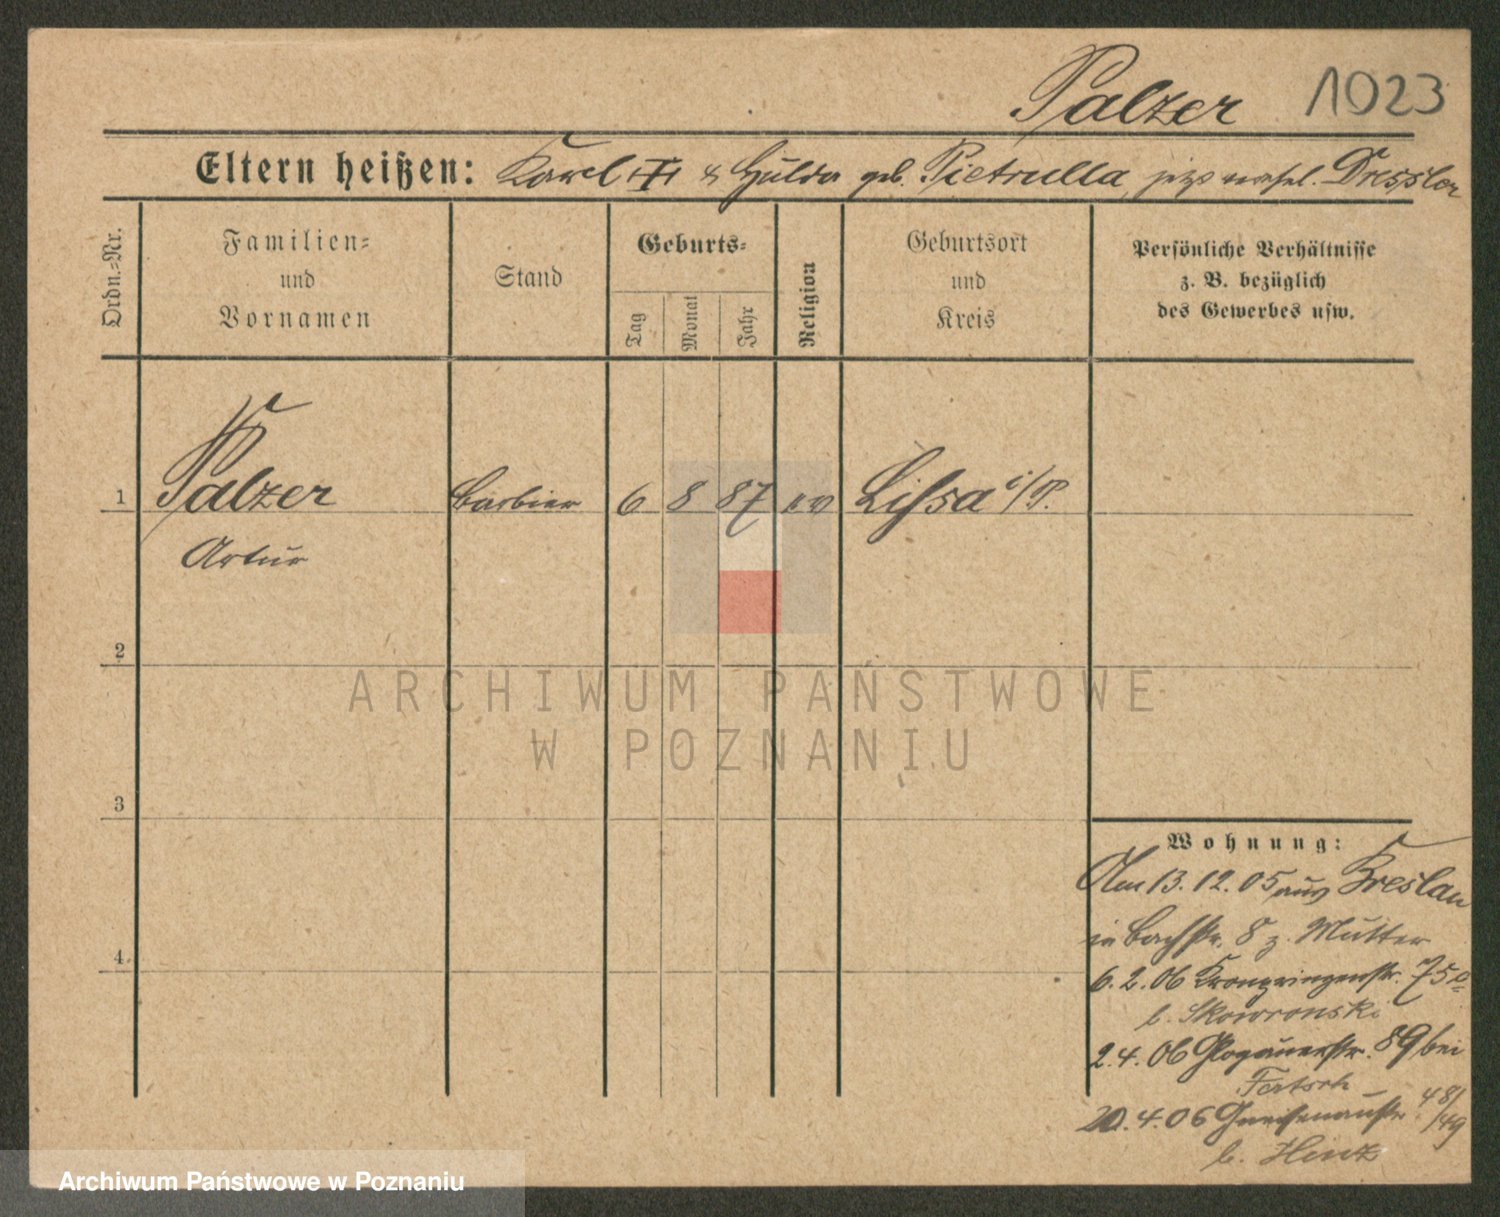 Palzer 1023
Eltern heißen: Karl & Hulda geb. Pietrulla, jetzt verehel. Dressler
Ordn.=Nr.
Familien=
und
Vornamen
Stand
Geburts=
Tag
Monat
Jahr
Religion
Geburtsort
und
Kreis
Persönliche Verhältnisse
z. B. bezüglich
des Gewerbes usw.
1 Palzer Barbier 6 8 87 ev Lissa i/P.
Artur
2
ARCHIWUM PAŃSTWOWE
W POZNANIU
3
4.
Wohnung:
Am 13.12.05 aus Breslau
in Bachstr. 8 z. Mutter
6.2.06 Kronprinzenstr. 75
b. Skowronski
2.4.06 Glogauerstr. 89 bei
Fertsch
20.4.06 Gneisenaustr. 48/49
b. Hinz
Archiwum Państwowe w Poznaniu